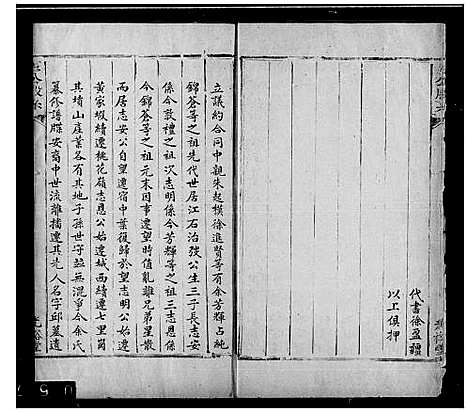 代書徐盈疆
以工俱押
立議約合同中親朱起模徐進賢等有余芳輝占純
錦蒼等之祖先代世居江石治發公生三子長志安
係今敦禮之祖次志明係今芳輝等之祖三志恩
今錦蒼等之祖元末因事遷望時值亂離兄弟星散
而居志安公自望遷宿中葉復歸於望志明公始遷
黃家塅續遷桃花嶺志恩公始遷城西續遷七里崗
其墳山產業各有其地子孫世守茲無混爭今余氏
纂修譜牒安裔中世流離播遷其先人名字邱墓遺
光裕堂